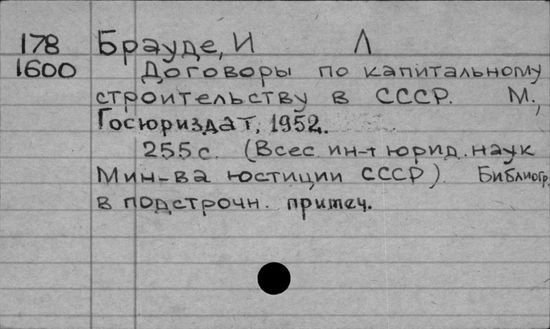 178 Брауде, И Л
1600 Договоры по капитальному
строительству в СССР. М.,
Госюриздат, 1952.
255 с. (Всес. ин-т юрид. наук
Мин-ва юстиции СССР). Библиогр.
в подстрочн. примеч.